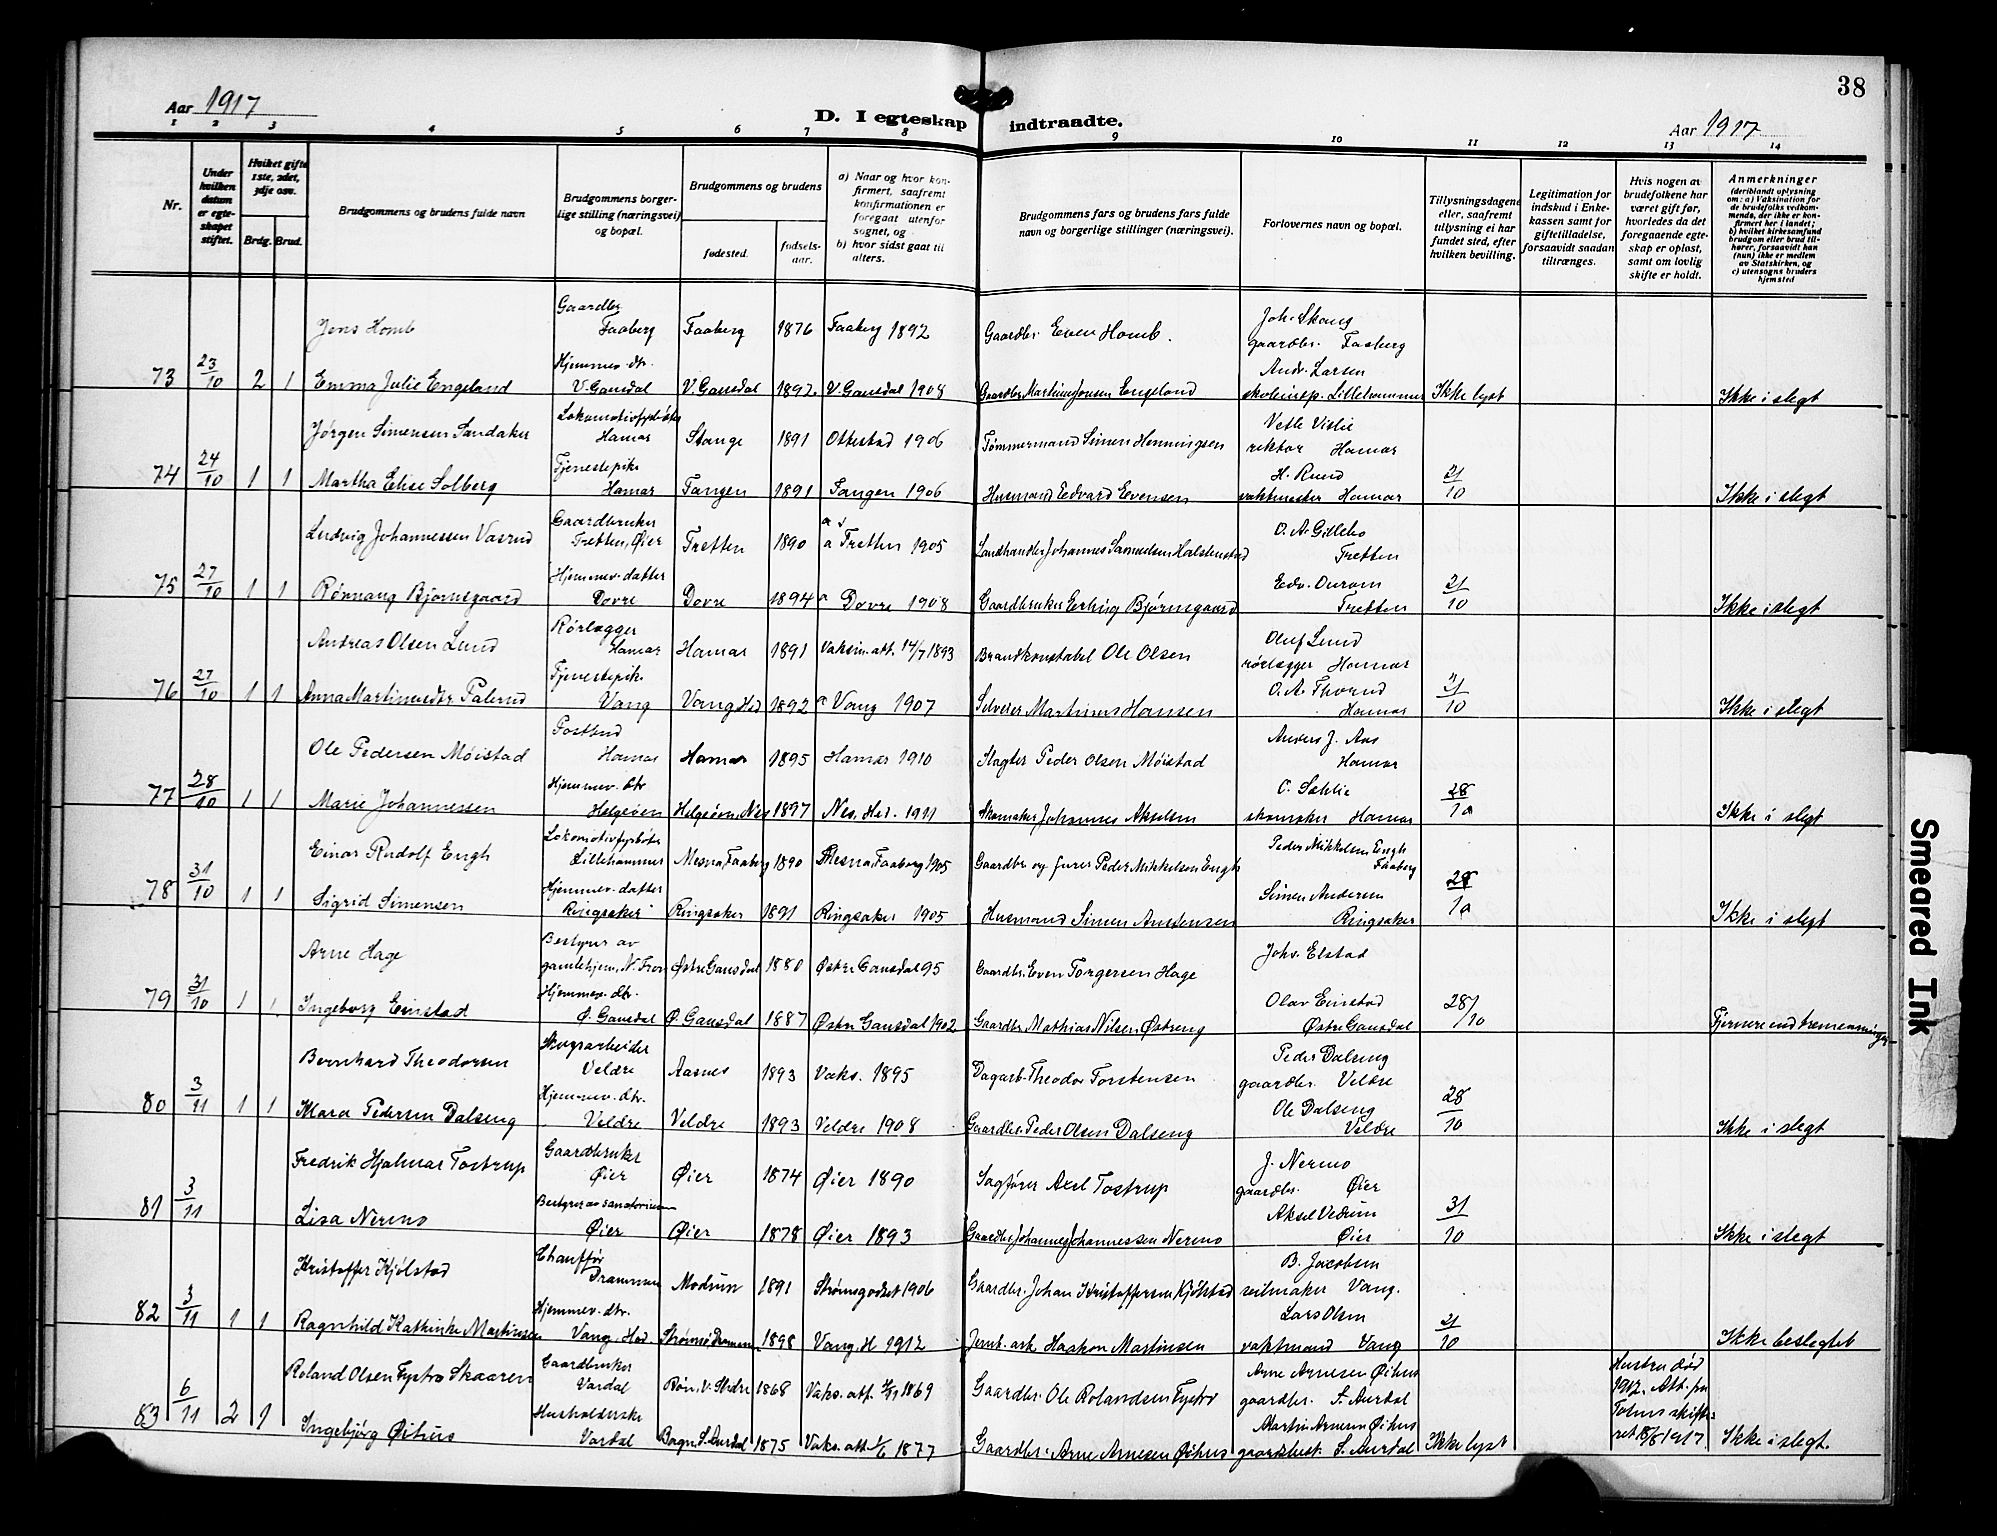 38
Aar 1917
D. I egteskap indtraadte.
Aar 1917
1 2 3 4 5 6 7 8 9 10 11 12 13 14
Nr.
Under hvilken datum er egteskapet stiftet.
Hvilket gifte 1ste, 2det, 3dje osv.
Brdg. Brud.
Brudgommens og brudens fulde navn
Brudgommens borgerlige stilling (næringsvei) og bopæl.
Brudgommens og brudens
fødested.
fødselsaar.
a) Naar og hvor konfirmert, saafremt konfirmationen er foregaat utenfor sognet, og
b) hvor sidst gaat til alters.
Brudgommens fars og brudens fars fulde navn og borgerlige stillinger (næringsvei).
Forlovernes navn og bopæl.
Tillysningsdagene eller, saafremt tillysning ei har fundet sted, efter hvilken bevilling.
Legitimation for indskud i Enkekassen samt for giftetilladelse, forsaavidt saadan tiltrænges.
Hvis nogen av brudefolkene har været gift før, hvorledes da det foregaaende egteskap er opløst, samt om lovlig skifte er holdt.
Anmerkninger
(deriblandt oplysning om: a) Vaksination for de brudefolks vedkommende, der ikke er konfirmert her i landet; b) hvilket kirkesamfund brudgom eller brud tilhører, forsaavidt han (hun) ikke er medlem av Statskirken, og c) utensogns bruders hjemsted
Jens Homb Gaardbr. Faaberg Faaberg 1876 Faaberg 1892 Gaardbr. Even Homb. Joh. Skoug gaardbr. Faaberg
73 23/10 2 1 Emma Julie Engeland Hjemmev. dtr. V. Gausdal V. Gausdal 1892. V. Gausdal 1908 Gaardbr. Martinus Jonsen Engeland Andr. Larsen skoleinsp. Lillehammer Ikke lyst Ikke i slegt
Jørgen Simensen Sandaker Hamar Stange 1891 Ottestad 1906 Tømmermand Simen Henningsen Vetle Vislie rektor Hamar
74 24/10 1 1 Martha Elise Solberg Tjenestepike Hamar Tangen 1891 Tangen 1906 Husmand Edvard Evensen H. Ruud vaktmester Hamar 21/10 Ikke i slegt
Ludvig Johannessen Vasrud Gaardbruker Tretten, Øier Tretten 1890 a Tretten 1905 Landhandler Johannes Samuelsen Halstenstad O. A. Gillebo Tretten
75 27/10 1 1 Rønnaug Bjørnsgaard Hjemmev. datter Dovre Dovre 1894 a Dovre 1908 Gaardbruker Erling Bjørnsgaard Edv. Onrom Tretten 21/10 Ikke i slegt
Andreas Olsen Lund Rørlægger Hamar Hamar 1891 Vaksin. att. 14/7 1893 Brandkonstabel Ole Olsen Oluf Lund rørlægger Hamar
76 27/10 1 1 Anna Martinusdtr Palerud Tjenestepike Vang Vang Hed 1892 a Vang 1907 Selveier Martinus Hansen O. A. Thorud Hamar 21/10 Ikke i slegt
Ole Pedersen Møistad Postbud Hamar Hamar 1895 Hamar 1910 Slagter Peder Olsen Møistad Anders J. Aas Hamar
77 28/10 1 1 Marie Johannessen Hjemmev. dtr Helgøen Helgøen, Nes 1897 Nes, Hed. 1911 Skomaker Johannes Akselsen O. Sæhlie skomaker Hamar 28/10 Ikke i slegt
Einar Rudolf Engh Lokomotivfyrbøter Lillehammer Mesna, Faaberg 1890 Mesna, Faaberg 1905 Gaardbr og furer Peder Mikkelsen Engh Peder Mikkelsen Engh Faaberg
78 31/10 1 1 Sigrid Simensen Hjemmev. datter Ringsaker Ringsaker 1891 Ringsaker 1905 Husmand Simen Amstensen Simen Andersen Ringsaker 28/10 Ikke i slegt
Arne Hage Bestyrer av gamlehjem, N. Fron Østre Gausdal 1880 Østre Gausdal 95 Gaardbr. Even Torgersen Hage Johs. Elstad
79 31/10 1 1 Ingeborg Einstad Hjemmev. dtr. Ø. Gausdal Ø. Gausdal 1887 Østre Gausdal 1902 Gaardbr. Mathias Nilsen Østreng Olav Einstad Østre Gausdal 28/10 Fjernere end tremenninger
Bernhard Theodorsen Skogsarbeider Veldre Aasnes 1893 Vaks. 1895 Dagarb. Theodor Torstensen Peder Dalseng gaardbr. Veldre
80 3/11 1 1 Mara Pedersen Dalseng Hjemmev. dtr. Veldre Veldre 1893 Veldre 1908 Gaardbr. Peder Olsen Dalseng Ole Dalseng Veldre 28/10 Ikke i slegt
Fredrik Hjalmar Tostrup Gaardbruker Øier Øier 1874 Øier 1890 Sagfører Axel Tostrup J. Nermo gaardbr. Øier
81 3/11 Lisa Nermo Bestyrer av sanatorium Øier Øier 1878 Øier 1893 Gaardbr. Johannes Johannessen Nermo Aksel Vedum Øier 31/10 Ikke i slegt
Kristoffer Kjølstad Chauffør Drammen Modum 1891 Strømsgodset 1906 Gaardbr. Johan Kristoffersen Kjølstad B. Jacobsen seilmaker Vang.
82 3/11 1 1 Ragnhild Kathinka Martinsen Hjemmev. dtr. Vang, Hed Strømsø Drammen 1898 Vang. H 1912 Jernb. arb. Haakon Martinsen Lars Olsen vaktmand Vang 21/10 Ikke beslegtet
Roland Olsen Fystro Skaaren Gaardbruker Vardal Røn, V. Slidre 1868 Vaks. att. 1869 Gaardbr. Ole Rolandsen Fystro Arne Arnesen Øihus gaardbr. S. Aurdal Hustru død 1912. Att. fra Totens skifteret 18/8 1917
83 6/11 2 1 Ingebjørg Øihus Husholderske Vardal Bagn, S. Aurdal 1875 Vaks. att. 1/6 1877 Gaardbr. Arne Arnesen Øihus Martin Arnesen Øihus gaardbest. S. Aurdal Ikke lyst Ikke i slegt.
Smeared Ink